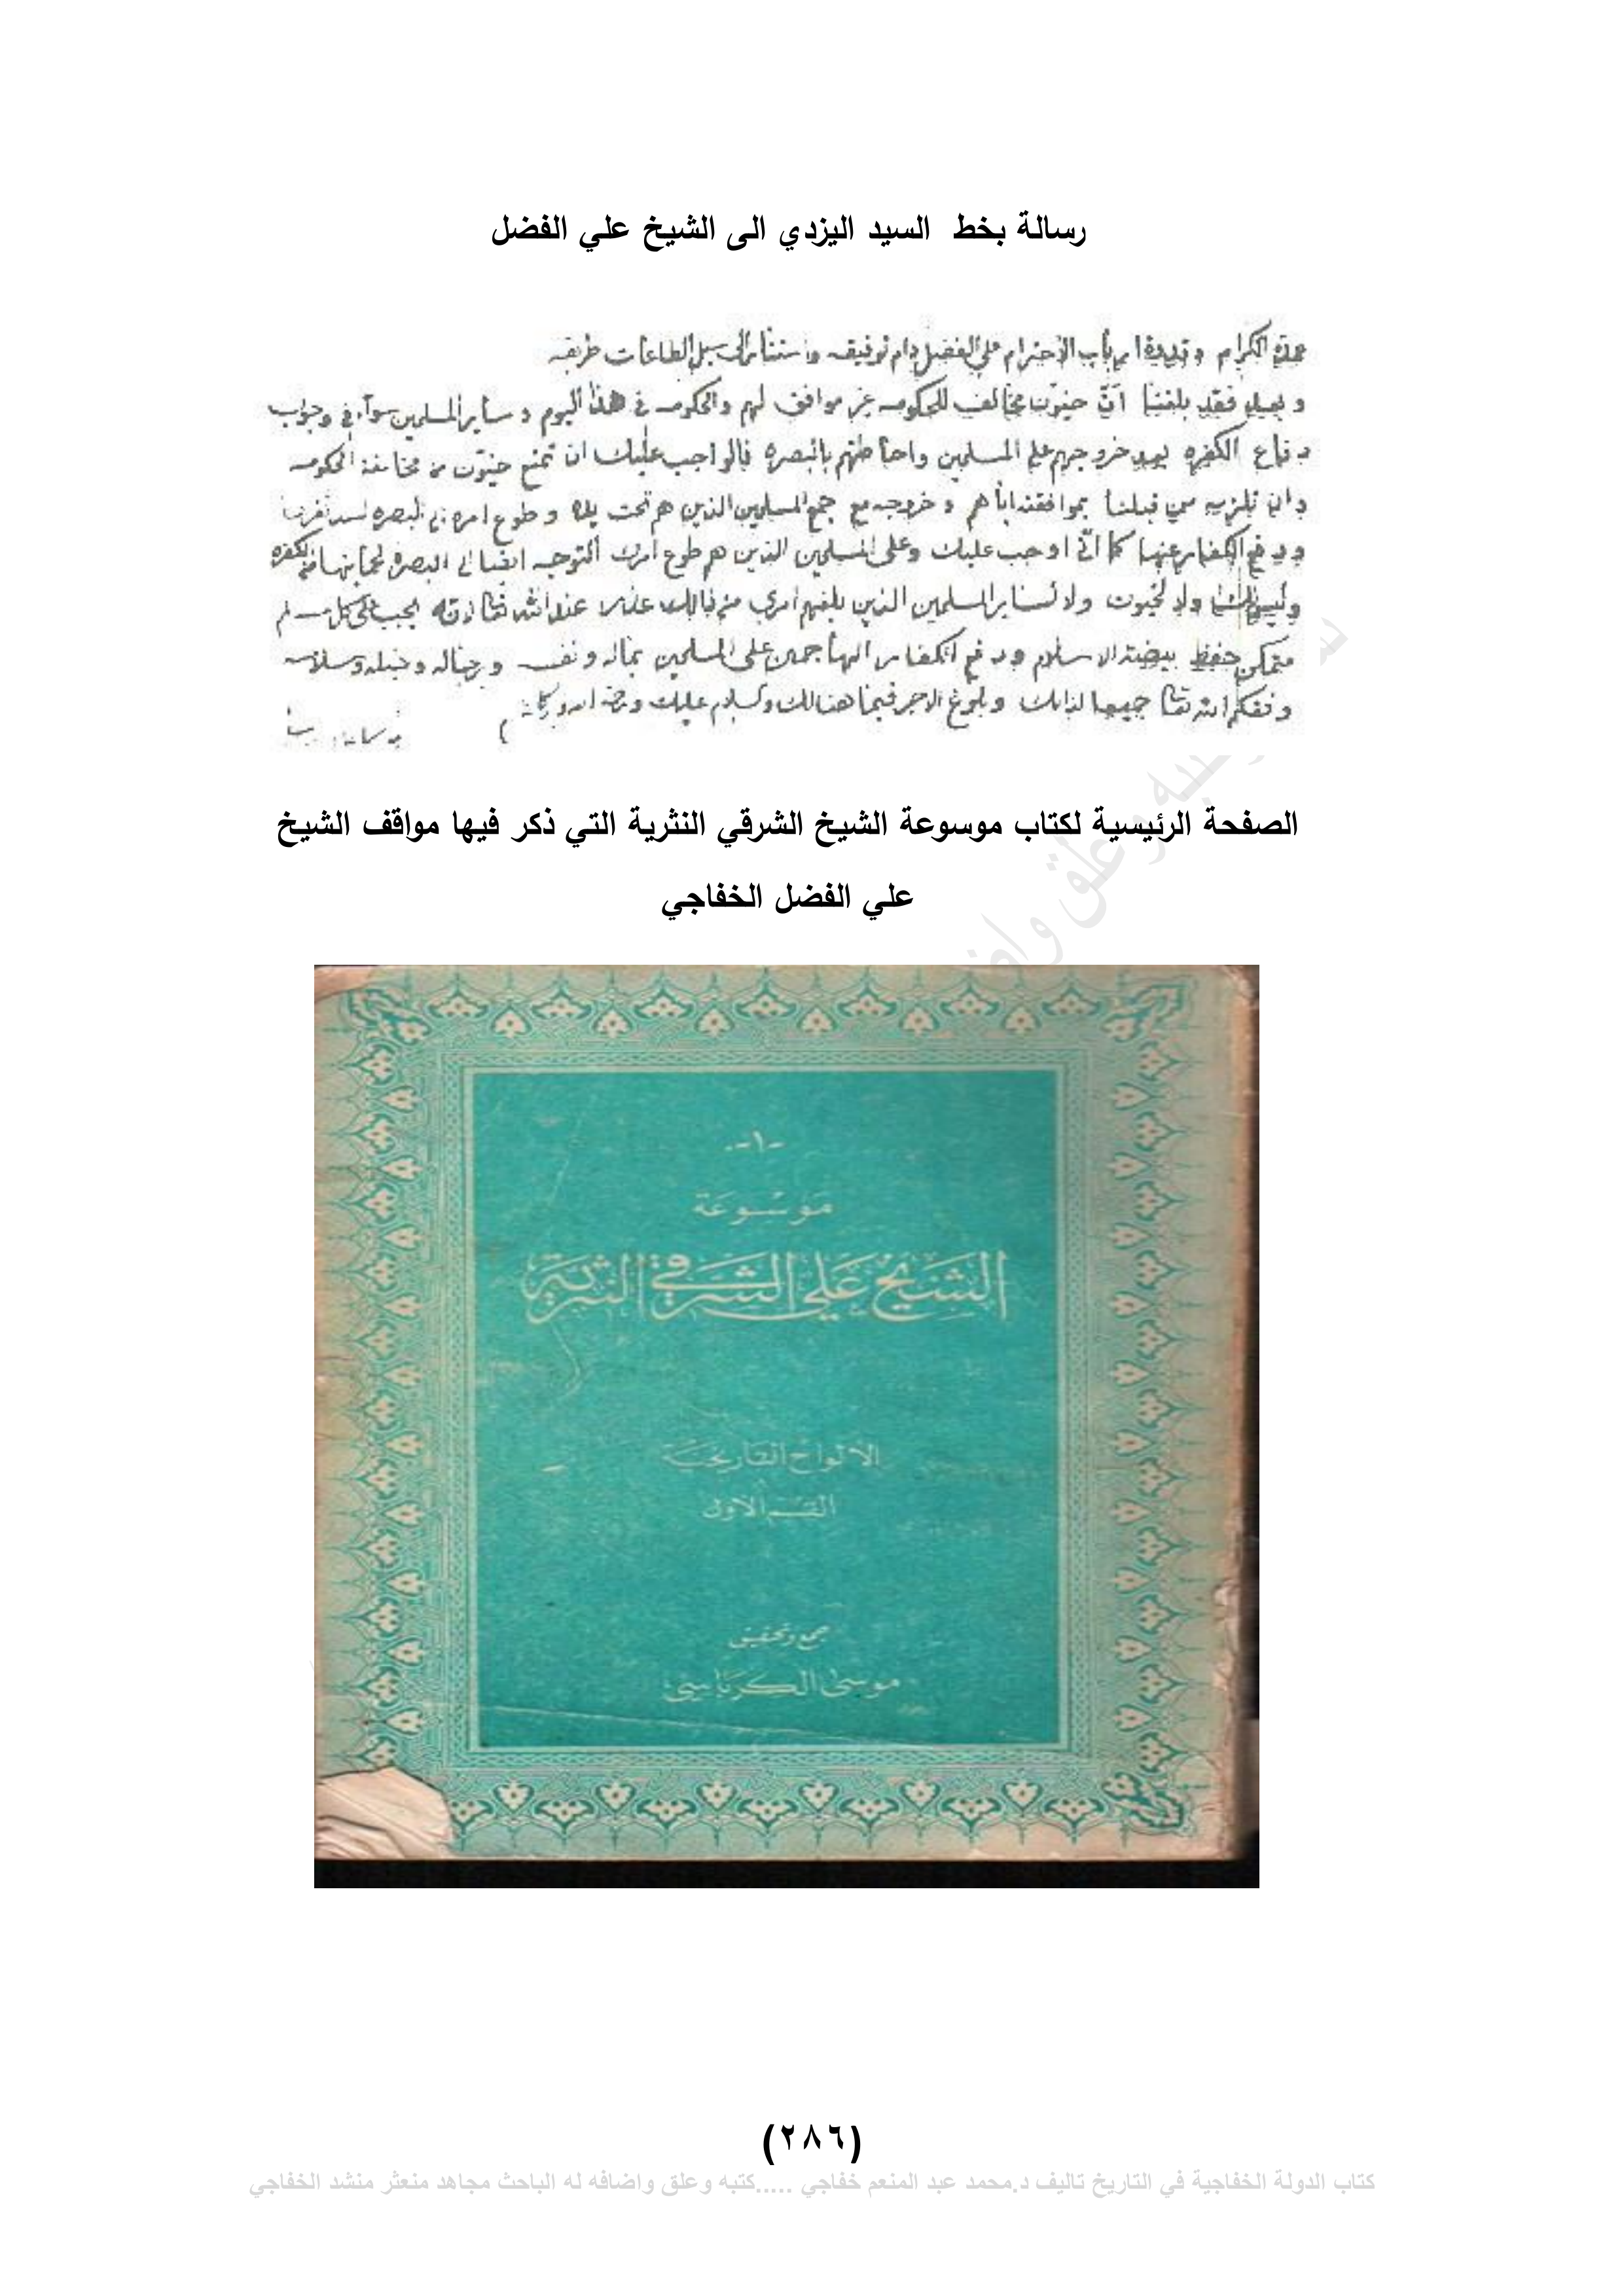 رسالة بخط السيد اليزدي الى الشيخ علي الفضل
عمدة الكرام وقدوة ارباب الاحترام علي الفضل دام توفيقه الى سبل الطاعات طريقه
وبعد فقد بلغنا أنّ خيّون مخالف للحكومه غير موافق لهم والحكومه في هذا اليوم وساير المسلمين سوآء في وجوب
دفاع الكفره بعد خروجهم على المسلمين واحاطتهم بالبصره فالواجب عليك ان تمنع خيّون من مخالفة الحكومه
وان تلزمه من قبلنا بموافقته اياهم وخروجه مع جمع المسلمين الذين هم تحت يده وطوع امره الى البصره لسد ثغرها
ودفع الكفار عنها كما انّي اوجب عليك وعلى المسلمين الذين هم طوع امرك التوجه ايضا الى البصره لحمايتها من الكفره
وليس لك ولا لخيون ولا لساير المسلمين الذين بلغهم امري من ذالك عذر عند الله تعالى لانه يجب على كل مسلم
متمكن حفظ بيضة الاسلام ودفع الكفار الهاجمين على المسلمين بماله ونفسه ورجاله وخيله وسلاحه
وفقكم الله تعالى جميعا لذالك وبلوغ الاجر فيما هنالك والسلام عليك ورحمة الله وبركاته
الصفحة الرئيسية لكتاب موسوعة الشيخ الشرقي النثرية التي ذكر فيها مواقف الشيخ
علي الفضل الخفاجي
-١-
مَوسُوعَة
الشَيخ عَلي الشَرقي النَثريَة
الألواح التاريخيَة
القسم الأول
جمع وتحقيق
موسى الكرباسي
(٢٨٦)
كتاب الدولة الخفاجية في التاريخ تاليف د.محمد عبد المنعم خفاجي .....كتبه وعلق واضافه له الباحث مجاهد منعثر منشد الخفاجي